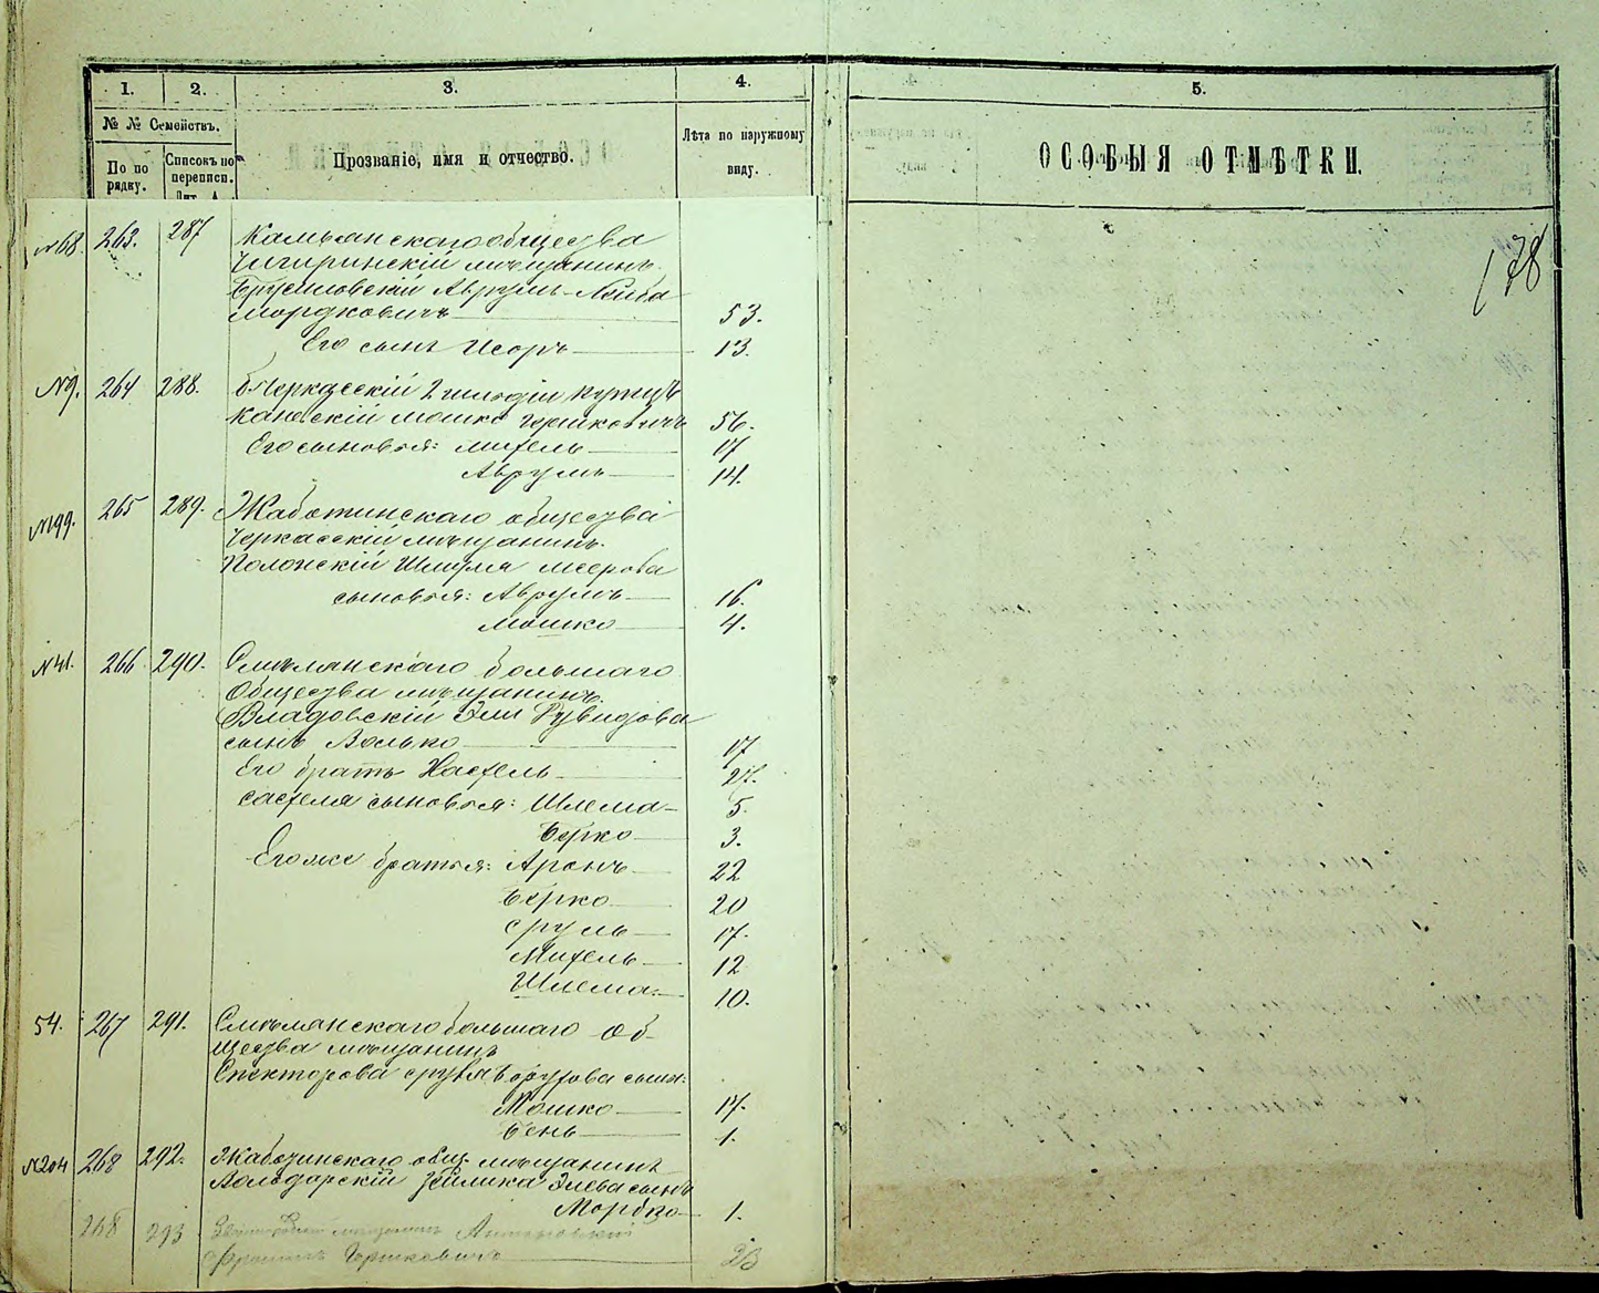 1. 2. 3. 4. 5.
№ № Семействъ.
По по рядку.
Списокъ по переписи. Лит. А.
Прозваніе, имя и отчество.
Лѣта по наружному виду.
ОСОБЫЯ ОТМѢТКИ.
178
№68. 263. 287 Камьянскаго общества
Чигиринскій мѣщанинъ
Аврумъ-Лейба
Мордковичъ 53.
Его сынъ Исоръ 13.
№9. 264 288. Черкасскій 2 гильдіи купецъ
Каневскій Мошко Гершковичъ 56.
Его сыновья: Михель 17
Аврумъ 14.
№199. 265 289. Жаботинскаго общества
Черкасскій мѣщанинъ.
Полонскій Шмуля Меерова
сыновья: Аврумъ 16.
Мошко 4.
№41. 266 290. Смѣлянскаго большаго
Общества мѣщанинъ
Владовскій Эли Рувидова
сынъ Волько 17
Его братъ Хаскель 27.
Хаскеля сыновья: Шлема 5.
Берко 3.
Его же братья: Аронъ 22
Берко 20
Сруль 17.
Михель 12
Шлема. 10.
54. 267 291. Смѣлянскаго большаго Об-
щества мѣщанинъ
Спекторова Сруля Борухова сын:
Мошко 17.
Бень 1.
№204 268 292. Жаботинскаго общ. мѣщанинъ
Зейлика Элева сынъ
Мордко 1.
268 293 мѣщанинъ
Гершковичъ 23